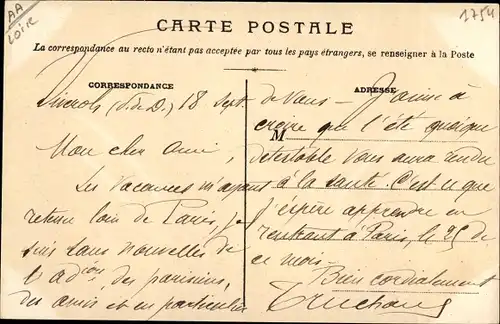 AA
LOIRE
1754
CARTE POSTALE
La correspondance au recto n'étant pas acceptée par tous les pays étrangers, se renseigner à la Poste
CORRESPONDANCE
Viverols (P. de D.) 18 Sept.
Mon cher Ami,
Les Vacances m'ayant
retenu loin de Paris, je
suis sans nouvelles de
l'ad^ion, des parisiens,
des amis et en particulier
ADRESSE
M
de Vous — J'aime à
croire que l'été quoique
détestable vous aura rendu
à la santé. C'est ce que
j'espère apprendre en
rentrant à Paris, le 25 de
ce mois.
Bien cordialement